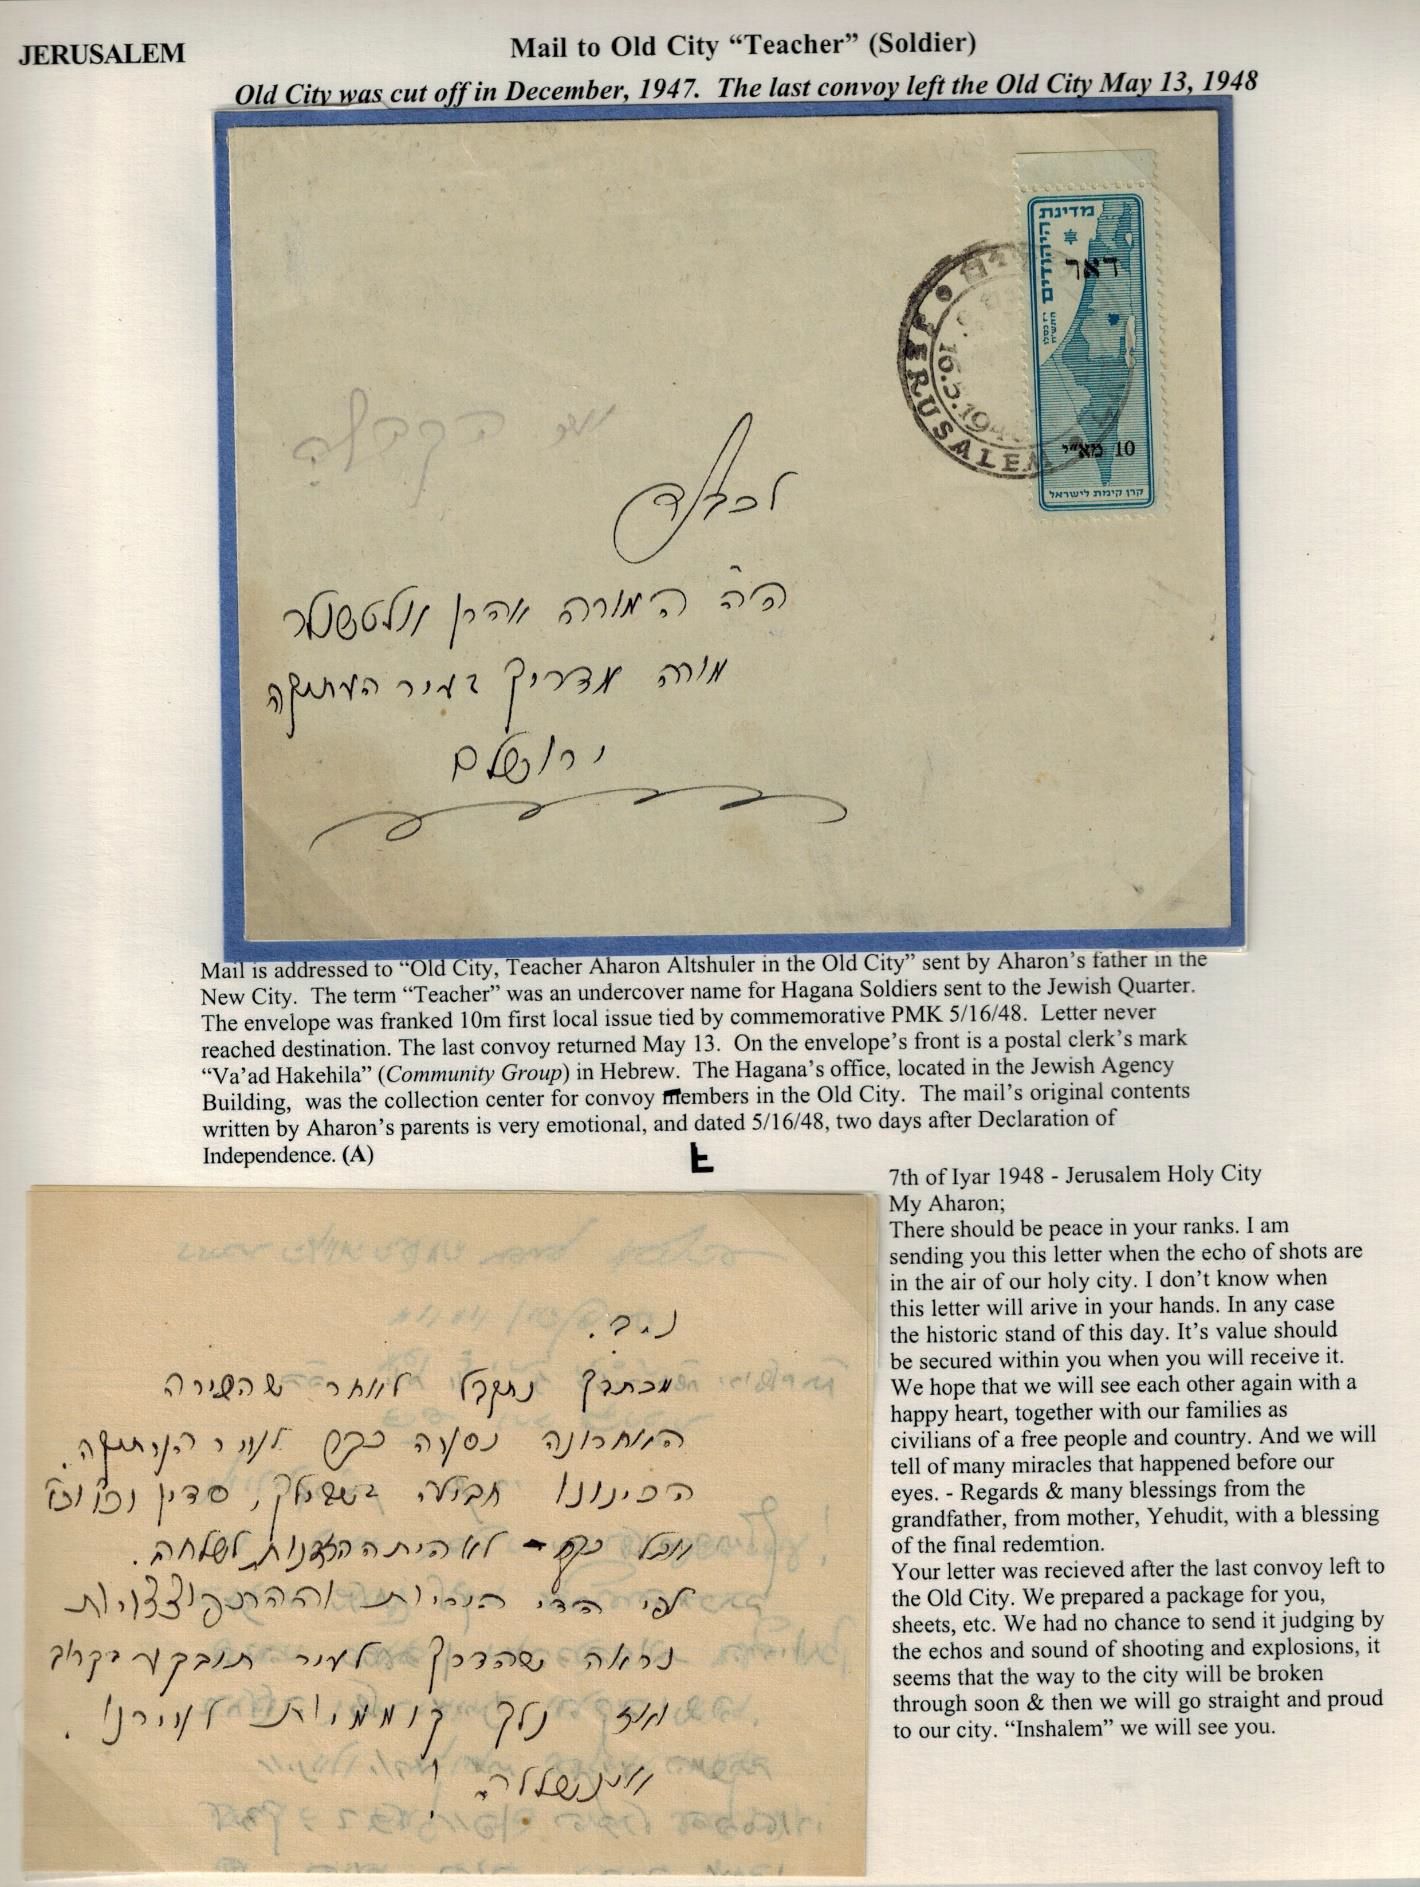 JERUSALEM
Mail to Old City “Teacher” (Soldier)
Old City was cut off in December, 1947. The last convoy left the Old City May 13, 1948
מדינת
היהודים
דאר
10 מא"י
קרן קימת לישראל
JERUSALEM
16.5.194
ועד הקהלה
לכבוד
ה"ה המורה אהרן אלטשולר
מורה מדריך בעיר העתיקה
ירושלם
Mail is addressed to “Old City, Teacher Aharon Altshuler in the Old City” sent by Aharon’s father in the
New City. The term “Teacher” was an undercover name for Hagana Soldiers sent to the Jewish Quarter.
The envelope was franked 10m first local issue tied by commemorative PMK 5/16/48. Letter never
reached destination. The last convoy returned May 13. On the envelope’s front is a postal clerk’s mark
“Va’ad Hakehila” (Community Group) in Hebrew. The Hagana’s office, located in the Jewish Agency
Building, was the collection center for convoy members in the Old City. The mail’s original contents
written by Aharon’s parents is very emotional, and dated 5/16/48, two days after Declaration of
Independence. (A)
7th of Iyar 1948 - Jerusalem Holy City
My Aharon;
There should be peace in your ranks. I am
sending you this letter when the echo of shots are
in the air of our holy city. I don’t know when
this letter will arive in your hands. In any case
the historic stand of this day. It’s value should
be secured within you when you will receive it.
We hope that we will see each other again with a
happy heart, together with our families as
civilians of a free people and country. And we will
tell of many miracles that happened before our
eyes. - Regards & many blessings from the
grandfather, from mother, Yehudit, with a blessing
of the final redemtion.
Your letter was recieved after the last convoy left to
the Old City. We prepared a package for you,
sheets, etc. We had no chance to send it judging by
the echos and sound of shooting and explosions, it
seems that the way to the city will be broken
through soon & then we will go straight and proud
to our city. “Inshalem” we will see you.
נ.ב.
מכתבך נתקבל לאחר שהשירה
האחרונה נסעה כבר לעיר העתיקה.
הכינונו חבילה בשבילך, סדין וכו' וכו'
אבל לא היתה הזדמנות לשלחה.
לפי הדי היריות וההתפוצצויות
נראה שהדרך לעיר תובקע בקרוב
ואז נלך קוממיות לעירנו.